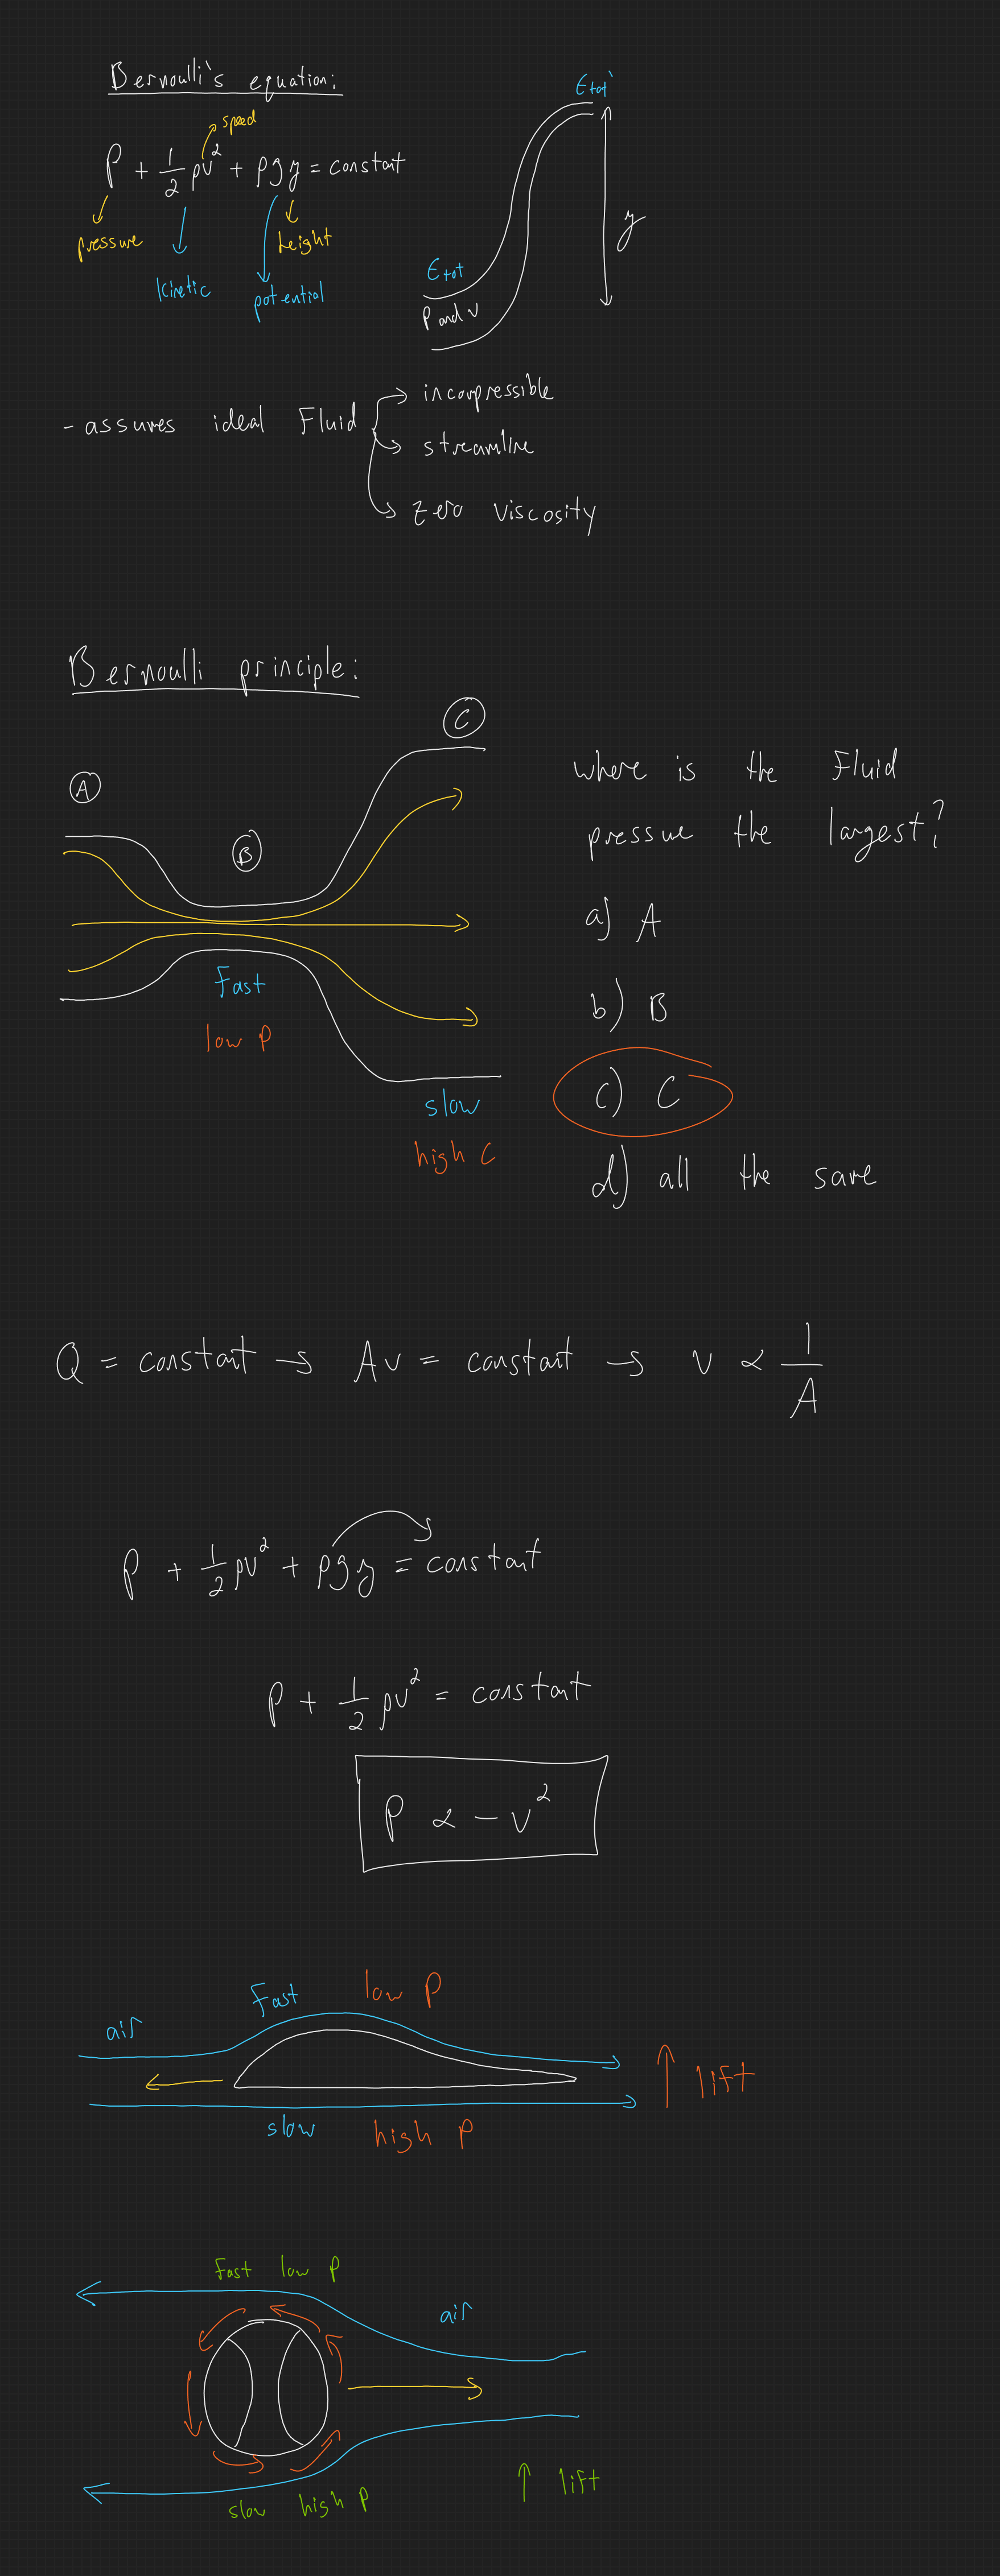 Bernoulli's equation:
speed
P + 1/2 ρv² + ρgy = constant
pressure
height
kinetic
potential
Etot'
y
Etot
P and v
- assumes ideal Fluid
incompressible
streamline
zero viscosity
Bernoulli principle:
A
B
C
Fast
low P
slow
high C
where is the Fluid
pressure the largest?
a) A
b) B
c) C
d) all the same
Q = constant → Av = constant → v ∝ 1/A
P + 1/2 ρv² + ρgy = constant
P + 1/2 ρv² = constant
P ∝ - v²
Fast low P
air
lift
slow high P
Fast low P
air
lift
slow high P